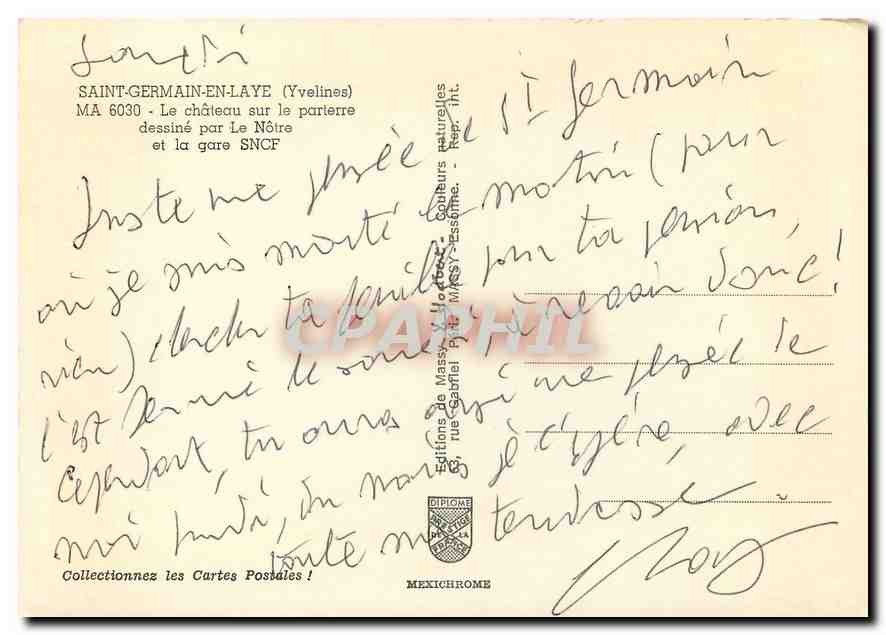 Samedi
SAINT-GERMAIN-EN-LAYE (Yvelines)
MA 6030 - Le château sur le parterre
dessiné par Le Nôtre
et la gare SNCF
Juste une pensée de St Germain
où je suis monté le matin (pour
rien) chercher ta feuille pour ta pension,
c'est fermé le samedi ! à revoir donc !
Cependant, tu auras ainsi une pensée de
moi lundi, du moins je l'espère, avec
toute ma tendresse
Editions de Massy - Couleurs naturelles
63, rue Gabriel Péri - MASSY - Essonne. - Rep. int.
CPAPHIL
DIPLOME
PRESTIGE
DE LA
FRANCE
Collectionnez les Cartes Postales !
MEXICHROME